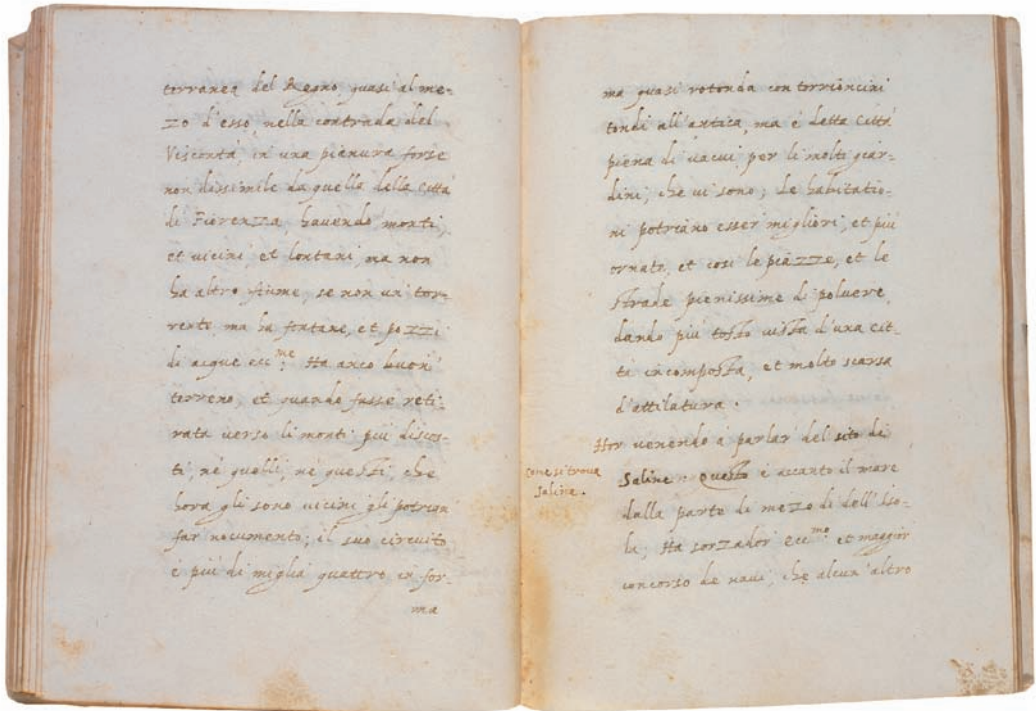 terranea del Regno, quasi al me-
zo d'esso, nella contrada del
Viscontà, in una pianura forse
non dissimile da quella della Città
di Fiorenza, havendo monti,
et vicini, et lontani, ma non
ha altro fiume, se non un tor-
rente, ma ha fontane, et pozzi
di acque ecc.me Ha anco buon
terreno, et quando fusse reti-
rata verso li monti più discos-
ti, nè quelli, nè questi, che
hora gli sono vicini gli potrian
far nocumento; il suo circuito
è più di miglia quattro in for-
ma
ma quasi rotonda con torrioncini
tondi all'antica, ma è detta Città
piena di vacui per li molti giar-
dini, che vi sono; Le habitatio-
ni potriano esser migliori, et più
ornate, et così le piazze, et le
strade pienissime di polvere,
dando più tosto vista d'una cit-
tà incomposta, et molto scarsa
d'attilatura.
Hor venendo à parlar del sito di
Come si trova
Saline.
Saline: Questo è accanto il mare
dalla parte di mezo dì dell'Iso-
la; Ha sorzador ecc.mo et maggior
concorso de navi, che alcun'altro